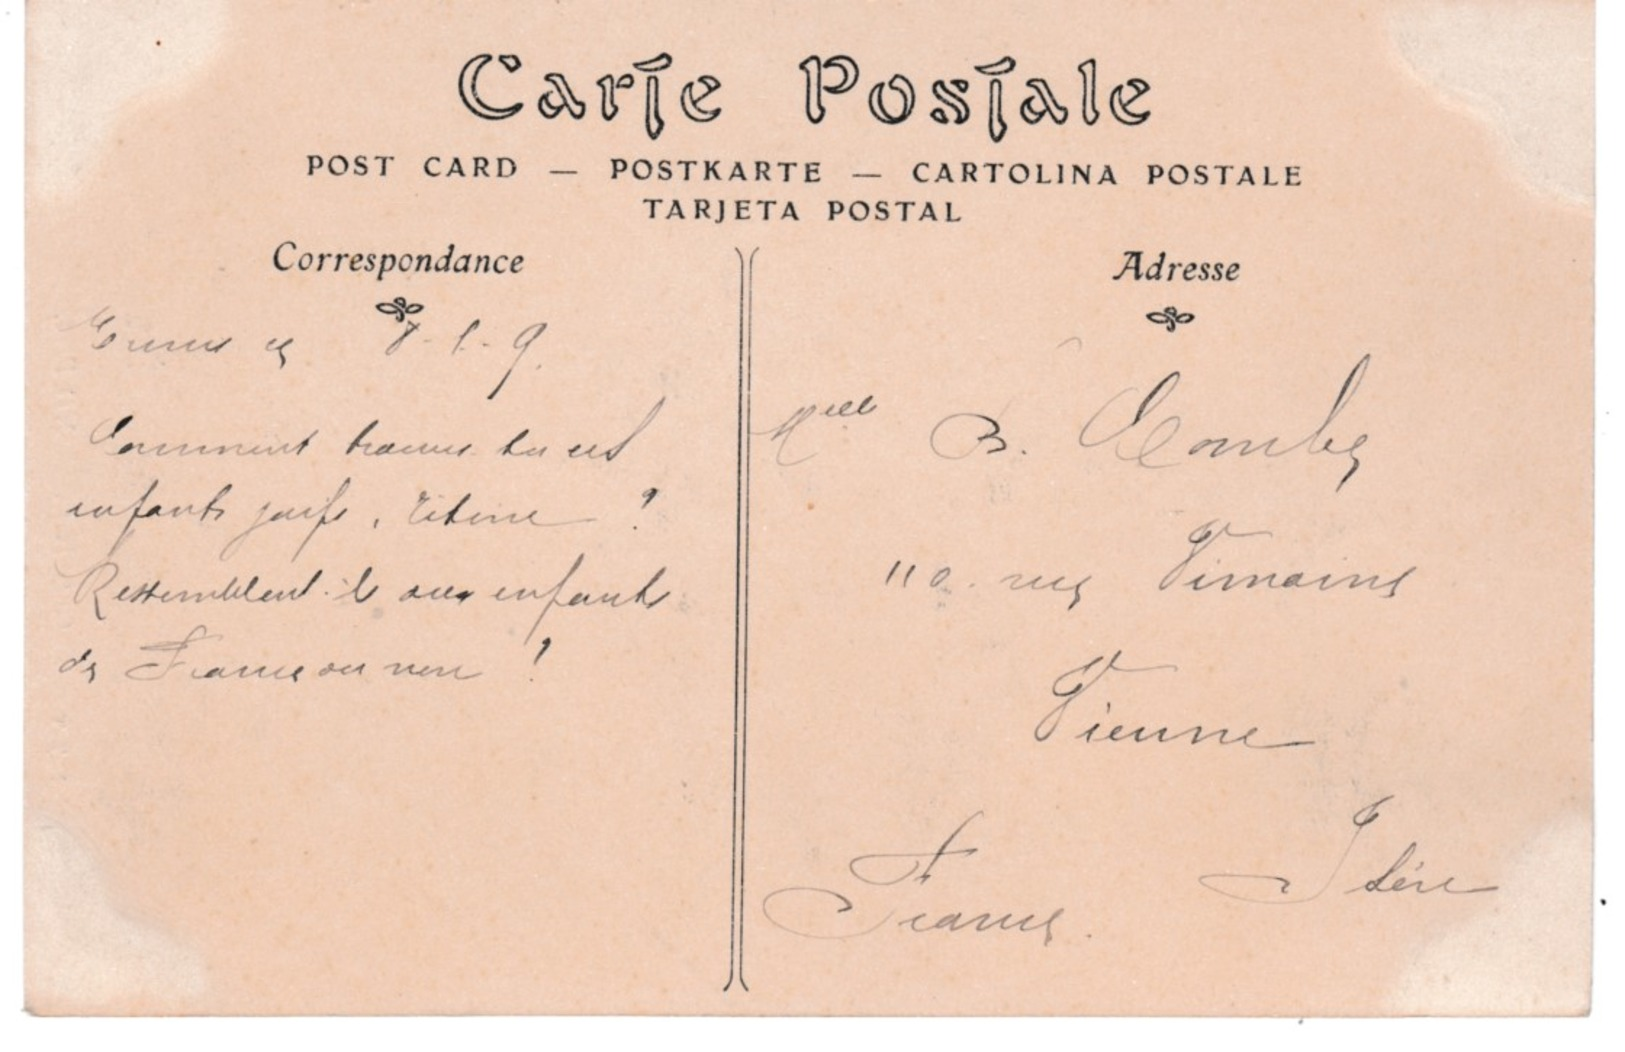 Carte Postale
POST CARD — POSTKARTE — CARTOLINA POSTALE
TARJETA POSTAL
Correspondance
Adresse
8-1-9.
Comment trouves tu ces
enfants juifs, Titine ?
Ressemblent-ils aux enfants
de France ou non ?
Melle B. Combe
110. rue Vimaine
Vienne
Isère
France.